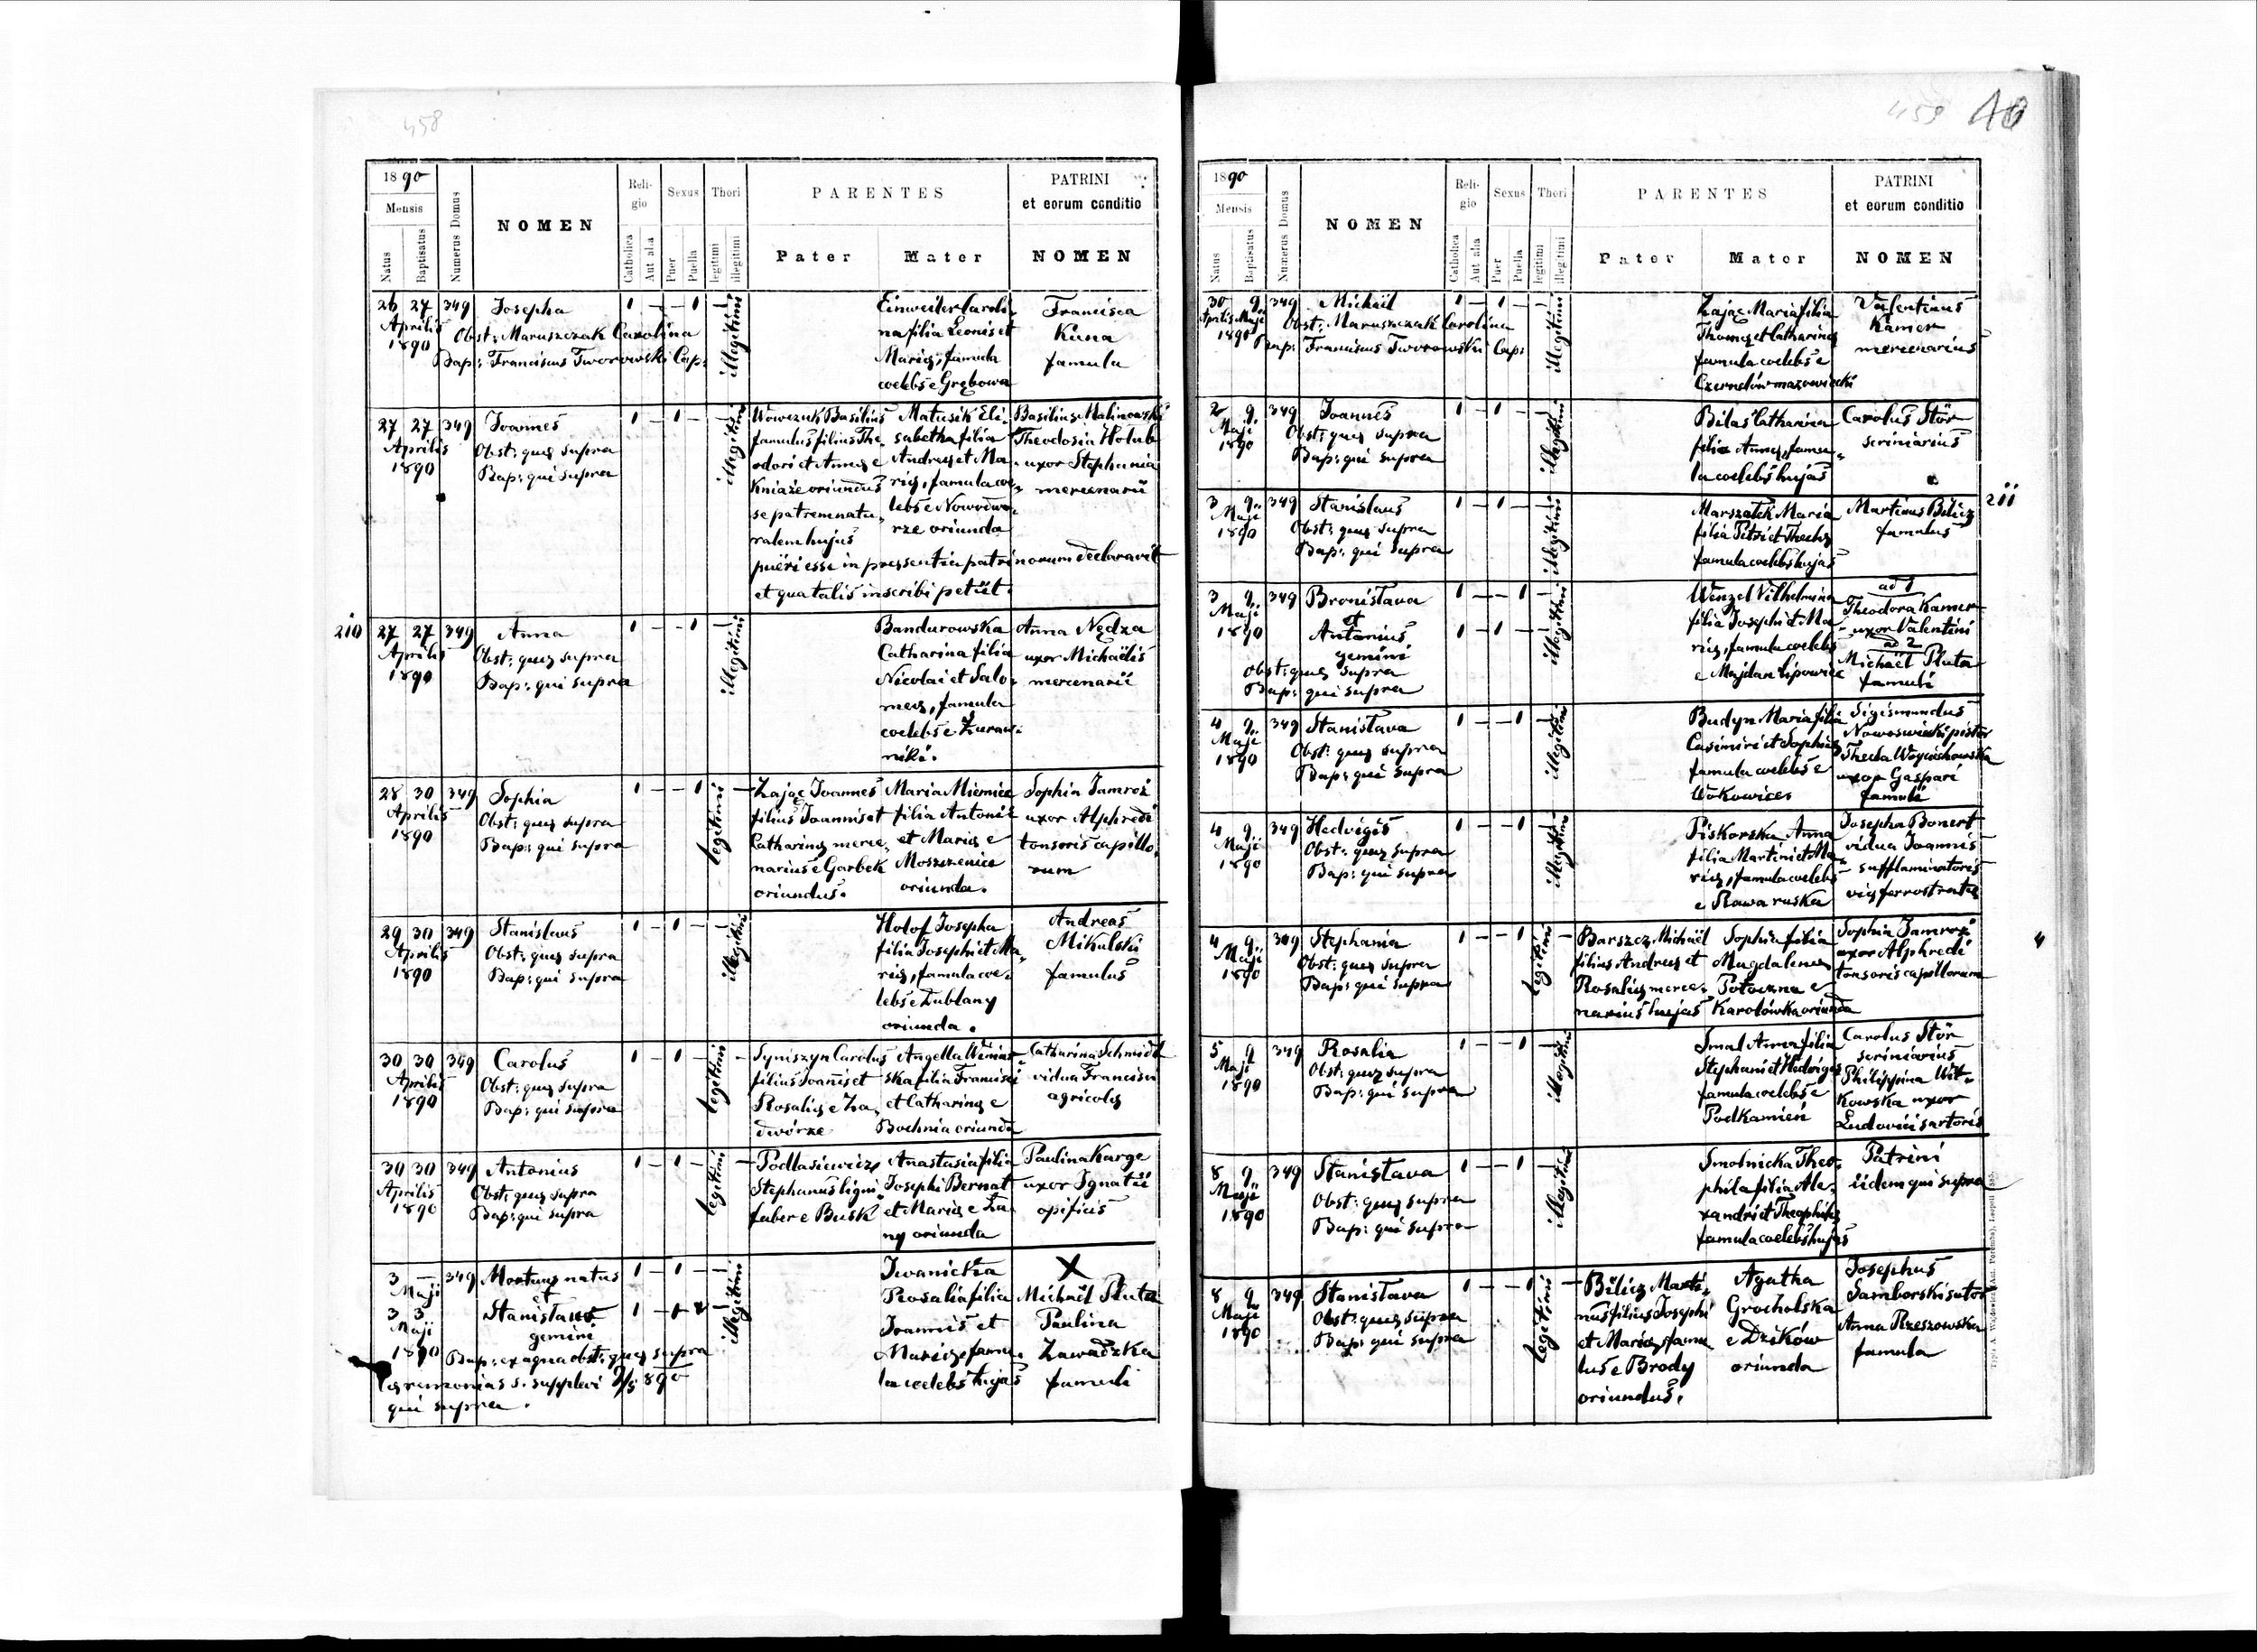 458
1890
Mensis
Natus
Baptisatus
Numerus Domus
NOMEN
Reli-
gio
Catholica
Aut alia
Sexus
Puer
Puella
Thori
legitimi
illegitimi
PARENTES
Pater
Mater
PATRINI
et eorum conditio
NOMEN
26 27 349 Josepha 1 — — 1 —
Aprilis
1890
Obst: Maruszczak Carolina
Bap: Franciscus Tworowski Cap:
illegitimi
Einweiler Caroli-
na filia Leonis et
Mariæ, famula
coelebs e Grębowa
Francisca
Kuna
famula
27 27 349 Joannes 1 — 1 — —
Aprilis
1890
Obst: quæ supra
Bap: qui supra
illegitimi
Wowczuk Basilius
famulus filius The-
odori et Annæ e
Kniaże oriundus
se patrem natu-
ralem hujus
Matusik Eli-
sabetha filia
Andreæ et Ma-
riæ, famula coe-
lebs e Nowodwo-
rze oriunda
pueri esse in præsentia patrinorum declaravit
et qua talis inscribi petiit.
Basilius Malinowski
Theodosia Holub
uxor Stephania
mercenarii
210
27 27 349 Anna 1 — — 1 —
Aprilis
1890
Obst: quæ supra
Bap: qui supra
illegitimi
Bandurowska
Catharina filia
Nicolai et Salo-
meæ, famula
coelebs e Żuraw-
niki.
Anna Nędza
uxor Michaëlis
mercenarii
28 30 349 Sophia 1 — — 1 —
Aprilis
1890
Obst: quæ supra
Bap: qui supra
legitimi
Zając Joannes
filius Joannis et
Catharinæ merce-
narius e Garbek
oriundus.
Maria Miernice
filia Antonii
et Mariæ e
Moszczenice
oriunda.
Sophia Jamroz
uxor Alphredi
tonsoris capillo-
rum
29 30 349 Stanislaus 1 — 1 — —
Aprilis
1890
Obst: quæ supra
Bap: qui supra
illegitimi
Holof Josepha
filia Josephi et Ma-
riæ, famula coe-
lebs e Dublany
oriunda.
Andreas
Mikulski
famulus
30 30 349 Carolus 1 — 1 — —
Aprilis
1890
Obst: quæ supra
Bap: qui supra
legitimi
Syniszyn Carolus
filius Joannis et
Rosaliæ e Za-
dwórze
Angella Winiar-
ska filia Francisci
et Catharinæ e
Bochnia oriunda
Catharina Schmidt
vidua Francisci
agricolæ
30 30 349 Antonius 1 — 1 — —
Aprilis
1890
Obst: quæ supra
Bap: qui supra
legitimi
Podlasiewicz
Stephanus ligni-
faber e Busk
Anastasia filia
Josephi Bernat
et Mariæ e Ła-
ny oriunda
Paulina Karge
uxor Ignatii
opificis
3 — 349 Mortuus natus 1 — 1 — —
Maji
et
3 3 Stanislaus 1 — 1
Maji
gemini
1890
Bap: ex aqua obst: quæ supra
Cæremonias s. supplevi 9/5 890
qui supra.
illegitimi
Iwanicka
Rosalia filia
Joannis et
Mariæ, famu-
la coelebs hujas
X
Michaël Pluta
Paulina
Zawadzka
famuli
459 40
1890
Mensis
Natus
Baptisatus
Numerus Domus
NOMEN
Reli-
gio
Catholica
Aut alia
Sexus
Puer
Puella
Thori
legitimi
illegitimi
PARENTES
Pater
Mater
PATRINI
et eorum conditio
NOMEN
30 9 349 Michaël 1 — 1 — —
Aprilis Maji
1890
Obst: Maruszczak Carolina
Bap: Franciscus Tworowski Cap:
illegitimi
Zając Maria filia
Thomæ et Catharinæ
famula coelebs e
Czerndów mazowiecki
Valentinus
Kamer
mercenarius
2 9. 349 Joannes 1 — 1 — —
Maji
1890
Obst: quæ supra
Bap: qui supra
illegitimi
Bilas Catharina
filia Annæ, famu-
la coelebs hujas
Carolus Stör
scriniarius
211
3 9. 349 Stanislaus 1 — 1 — —
Maji
1890
Obst: quæ supra
Bap: qui supra
illegitimi
Marszałek Maria
filia Petri et Theclæ
famula coelebs hujas
Martinus Bilicz
famulus
3 9. 349 Bronisława 1 — — 1 —
Maji
et
1890 Antonius 1 — 1 — —
gemini
Obst: quæ supra
Bap: qui supra
illegitimi
Wenzel Vilhelmina
filia Josephi et Ma-
riæ, famula coelebs
e Majdan lipowiec
ad 1
Theodora Kamer
uxor Valentini
ad 2
Michaël Pluta
famuli
4 9. 349 Stanisława 1 — — 1 —
Maji
1890
Obst: quæ supra
Bap: qui supra
illegitimi
Budyn Maria filia
Casimiri et Sophiæ
famula coelebs e
Wokowice
Sigismundus
Nowoswiecki pistor
Thecla Woyciechowska
uxor Gaspari
famuli
4 9. 349 Hedvigis 1 — — 1 —
Maji
1890
Obst: quæ supra
Bap: qui supra
illegitimi
Piskorska Anna
filia Martini et Ma-
riæ, famula coelebs
e Rawa ruska
Josepha Bonert
vidua Joannis
sufflaminatoris
viæ ferrostratæ
4 9. 349 Stephania 1 — — 1 —
Maji
1890
Obst: quæ supra
Bap: qui supra
legitimi
Barszcz Michaël
filius Andreæ et
Rosaliæ merce-
narius hujas
Sophia filia
Magdalenæ
Potoczna e
Karolówka oriunda
Sophia Jamroz
uxor Alphredi
tonsoris capillorum
5 9 349 Rosalia 1 — — 1 —
Maji
1890
Obst: quæ supra
Bap: qui supra
illegitimi
Smal Anna filia
Stephani et Hedvigis
famula coelebs e
Podkamień
Carolus Stör
scriniarius
Philippina Wit-
kowska uxor
Ludovici sartoris
8 9. 349 Stanisława 1 — — 1 —
Maji
1890
Obst: quæ supra
Bap: qui supra
illegitimi
Smolnicka Theo-
phila filia Ale-
xandri et Theophilæ
famula coelebs hujas
Patrini
iidem qui supra
8 9. 349 Stanisława 1 — — 1 —
Maji
1890
Obst: quæ supra
Bap: qui supra
legitimi
Bilicz Marti-
nus filius Josephi
et Mariæ, famu-
lus e Brody
oriundus.
Agatha
Grocholska
e Dzików
oriunda
Josephus
Samborski sutor
Anna Rzeszowska
famula